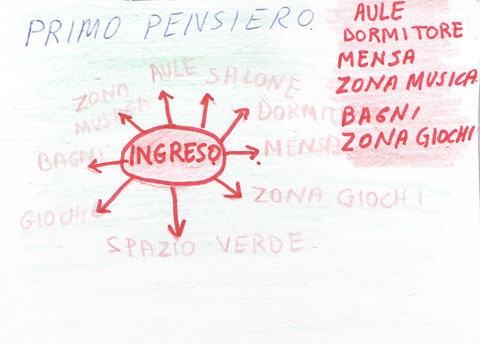 PRIMO PENSIERO.
AULE
DORMITORE
MENSA
ZONA MUSICA
BAGNI
ZONA GIOCHI
AULE
SALONE
ZONA
MUSICA
MENSA
BAGNI
INGRESO
ZONA GIOCHI
GIOCHI
SPAZIO VERDE